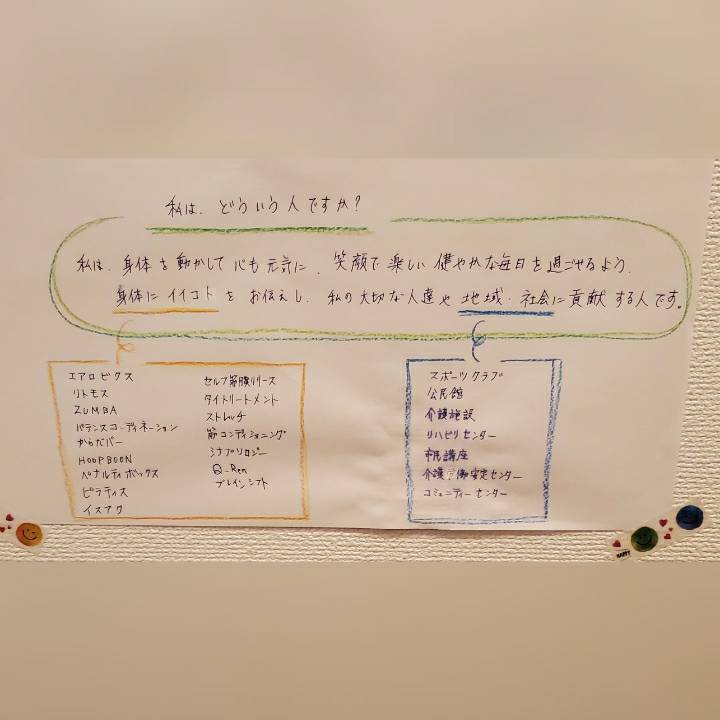 私は、どういう人ですか?
私は、身体を動かして心も元気に、笑顔で楽しい健やかな毎日を過ごせるよう、
身体にイイコトをお伝えし、私の大切な人達や地域・社会に貢献する人です。
エアロビクス
リトモス
ZUMBA
バランスコーディネーション
からだバー
HOOPBOON
ペナルティボックス
ピラティス
イスアク
セルフ筋膜リリース
タイトリートメント
ストレッチ
筋コンディショニング
シナプソロジー
Q-Ren
ブレインシフト
スポーツクラブ
公民館
介護施設
リハビリセンター
市民講座
介護労働安定センター
コミュニティーセンター
HAPPY